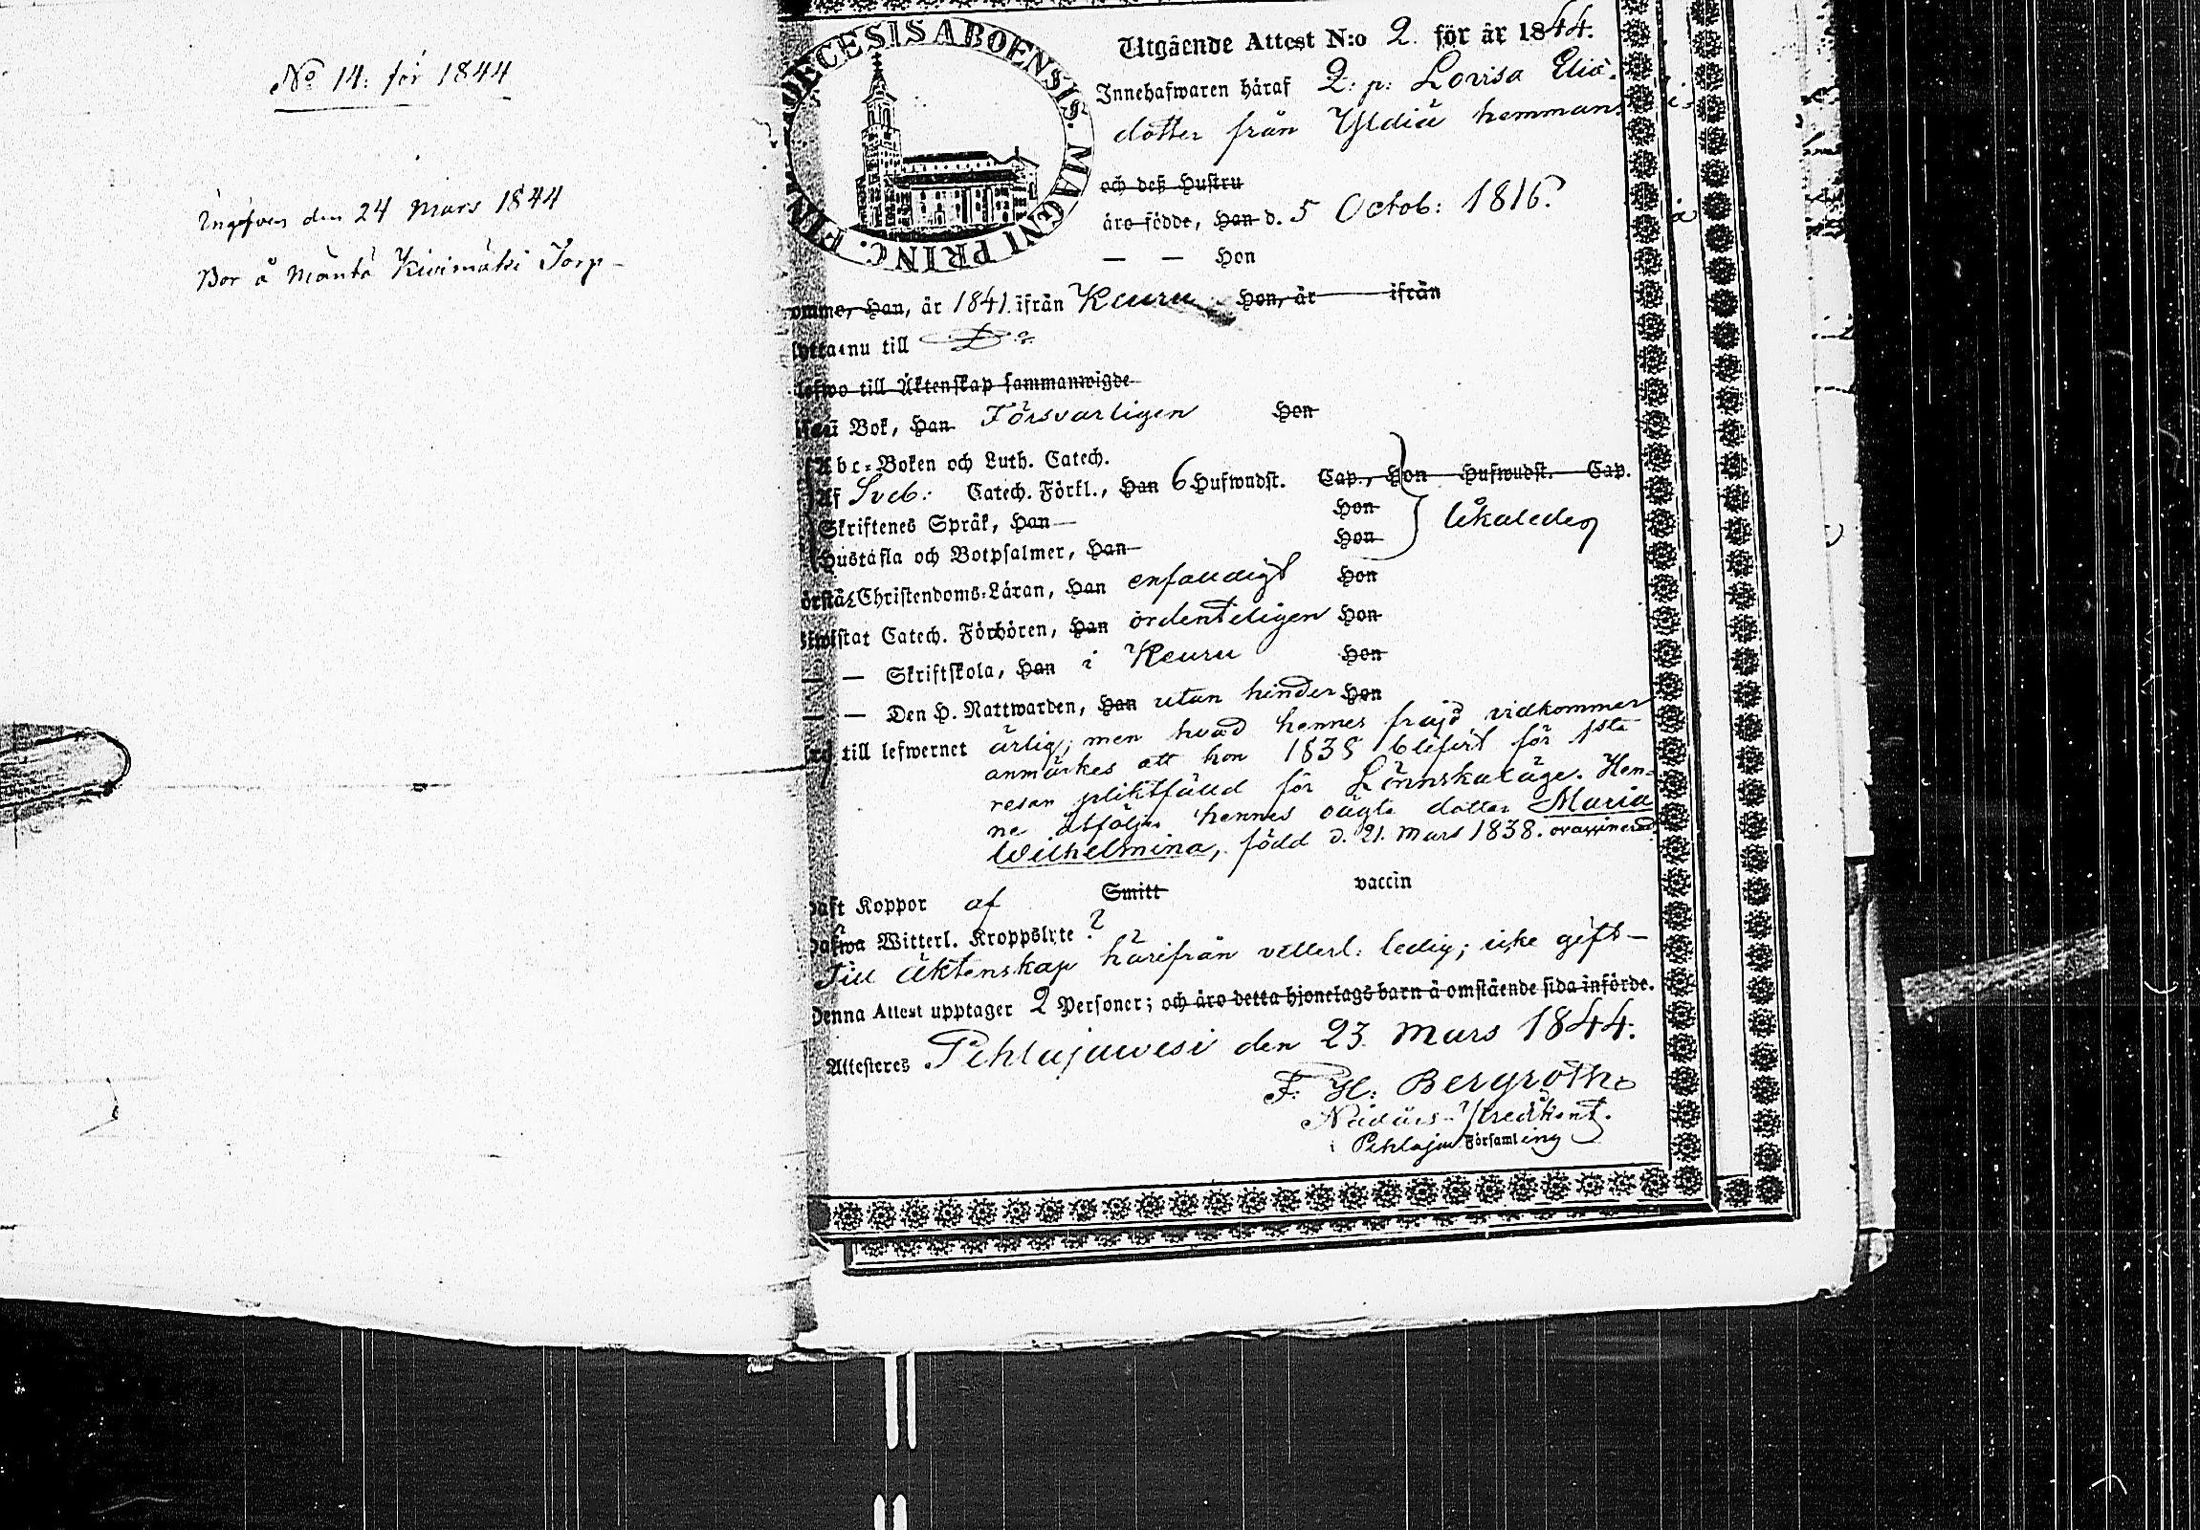 No 14. för 1844
Ingifven den 24 Mars 1844
Bor å Mänttä Kivimäki Torp
DIOECESIS ABOENSIS. MAGNI PRINC. FINL
Utgående Attest N:o 2. för år 1844.
Innehafwaren häraf Q: p: Lovisa Eliä-
dotter från Yldiä hemman
och deß Hustru
äro födde, Han d. 5 Octob: 1816.
— — Hon
omme, Han, år 1841. ifrån Keuru Hon, år ifrån
flytta nu till D:o
lefwo till Äktenskap sammanwigde
i Bok, Han Försvarligen Hon
Abc-Boken och Luth. Catech.
Af Sveb: Catech. Förkl., Han 6 Hufwudst. Cap., Hon Hufwudst. Cap.
Skriftenes Språk, Han Hon
Hustafla och Botpsalmer, Han Hon
likaledes
örstår Christendoms-Läran, Han enfaldigt Hon
wistat Catech. Förhören, Han ordenteligen Hon
— — Skriftskola, Han i Keuru Hon
— — Den H. Nattwarden, Han utan hinder Hon
till lefwernet ärlig; men hvad hennes frejd vidkommer
anmärkes att hon 1838 blifvit för 1sta
resan pliktfälld för Lönnskaläge. Hen-
ne åtföljer hennes oägta dotter Maria
Wilhelmina, född d. 21. Mars 1838. ovaccinerad
haft Koppor af Smitt vaccin
hafwa Witterl. Kroppslyte ?
Till Äktenskap härifrån vetterl. ledig; icke gift
Denna Attest upptager 2 Personer; och äro detta hjonelags barn å omstående sida införde.
Attesteres Pihlajawesi den 23 Mars 1844.
F. H. Bergroth
Nådårs-Predikant.
i Pihlaja Församling